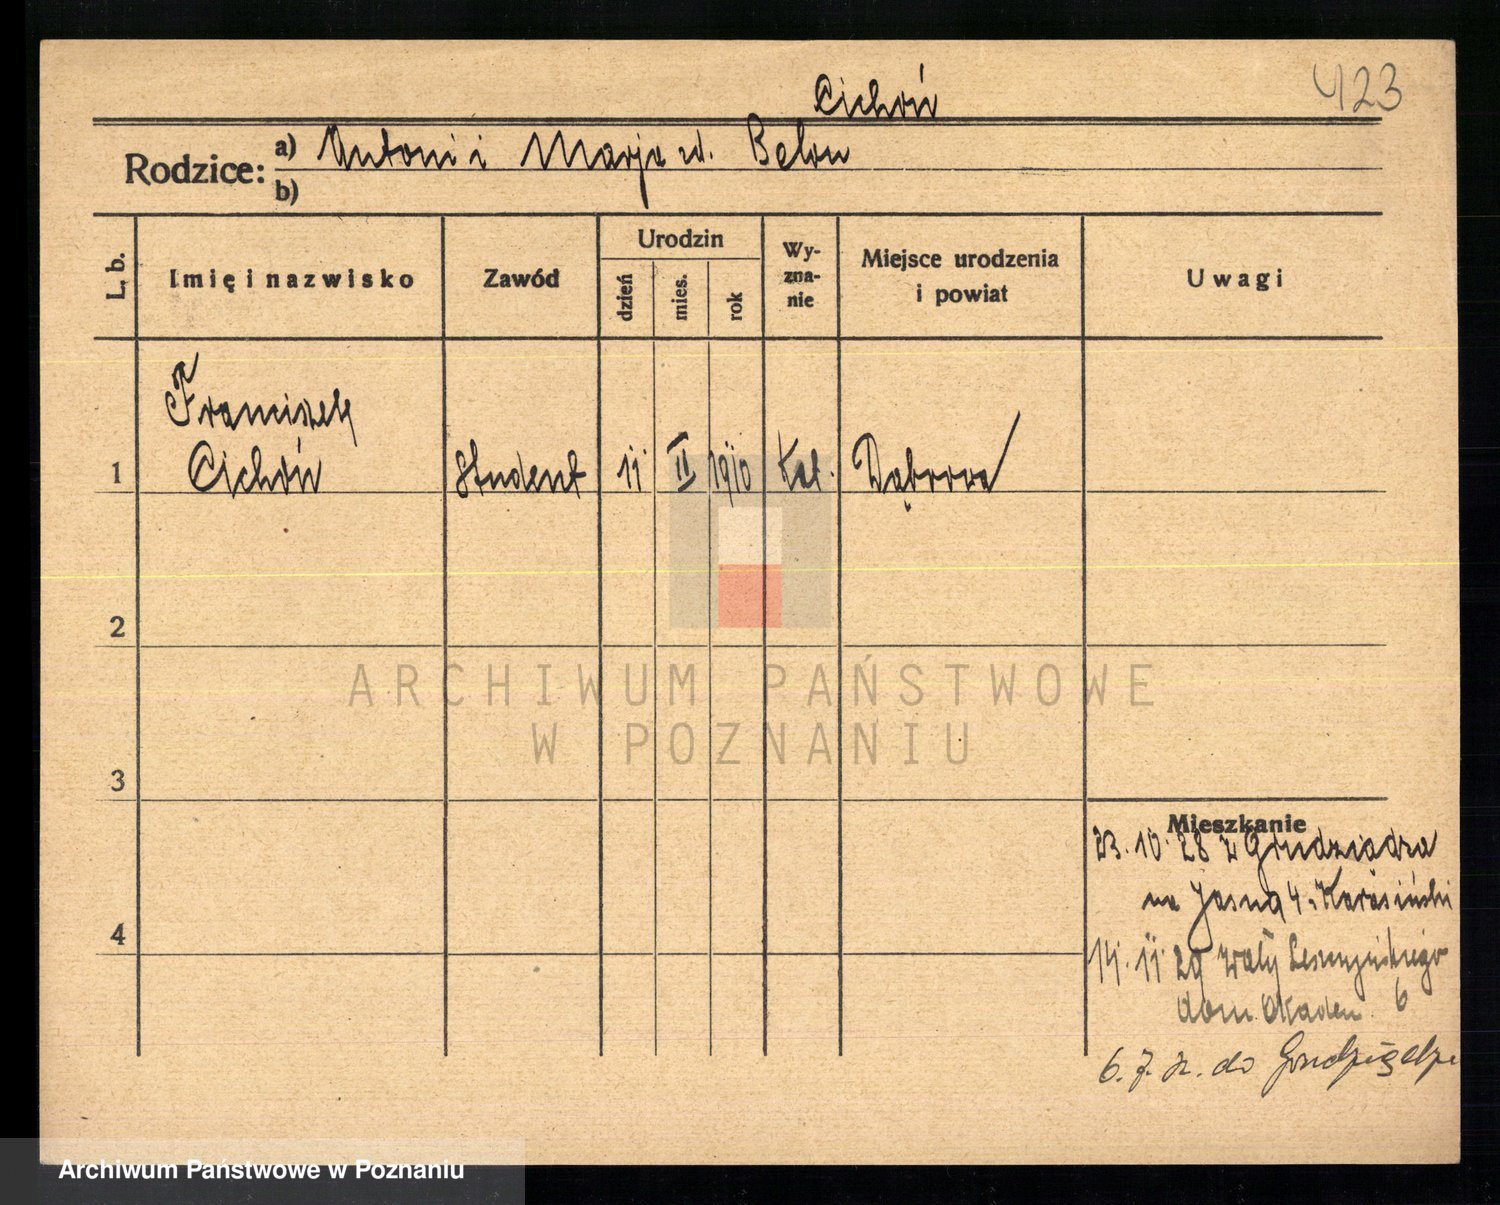 423
Cichoń
Rodzice: a) Antoni i Marja ur. Belau
b)
L. b. Imię i nazwisko Zawód Urodzin dzień mies. rok Wy-zna-nie Miejsce urodzenia i powiat Uwagi
Franciszek
1 Cichoń student 11 II 1910 Kat. Dąbrowa
2
ARCHIWUM PAŃSTWOWE
W POZNANIU
3
Mieszkanie
23. 10. 28 z Grudziądza
na Jasna 4. Karasiński
4
14. 11 29 Wały Leszczyńskiego
dom. Akadem. 6
6. 7. do
Archiwum Państwowe w Poznaniu